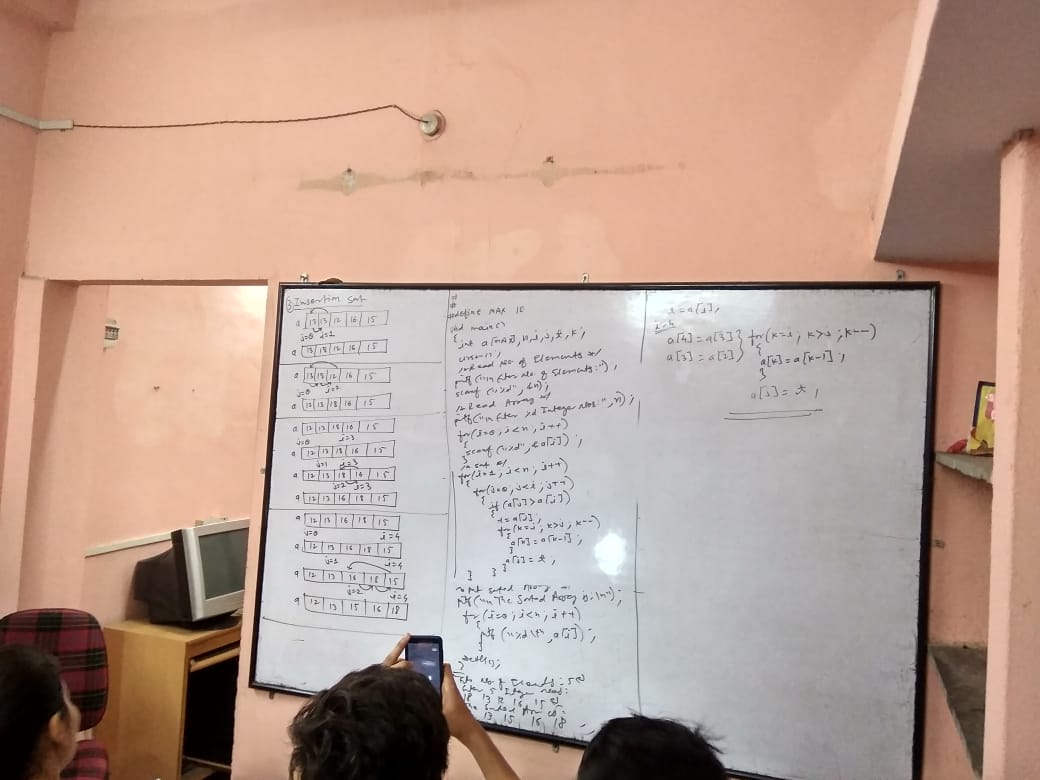 ③ Insertion Sort
a 13 13 12 16 15
j=0 i=1
a 13 18 12 16 15
a 13 13 12 16 15
j=0 i=2
a 12 13 18 16 15
a 12 13 18 16 15
j=0 i=3
a 12 13 18 16 15
j=1 i=3
a 12 13 18 16 15
j=2 i=3
a 12 13 16 18 15
a 12 13 16 18 15
j=0 i=4
a 12 13 16 18 15
j=1 i=4
a 12 13 16 18 15
j=2 i=4
a 12 13 15 16 18
#
#
#define MAX 10
void main()
{ int a[MAX], n, i, j, t, k;
clrscr();
/* Read No of Elements */
ptf("\n Enter No. of Elements:");
scanf("%d", &n);
/* Read Array */
ptf("\n Enter %d Integer Nos:", n);
for(i=0; i<n; i++)
{
scanf("%d", &a[i]);
}
/* sort */
for(i=1; i<n; i++)
{
for(j=0; j<i; j++)
{ if (a[j]>a[i])
{
t=a[i];
for(k=i; k>j; k--)
{
a[k]=a[k-1];
}
a[j]=t;
} }
}
sorted Array
ptf("\n The Sorted Array is:\n");
for(i=0; i<n; i++)
{
ptf("%d\t", a[i]);
}
getch();
}
No. of Elements: 5
Enter 5 Integer nos:
18 13 12 16 15
13 15 16 18
t=a[i];
i=4
a[4]=a[3]
a[3]=a[2]
} for(k=i; k>j; k--)
{
a[k]=a[k-1];
}
a[j]=t;